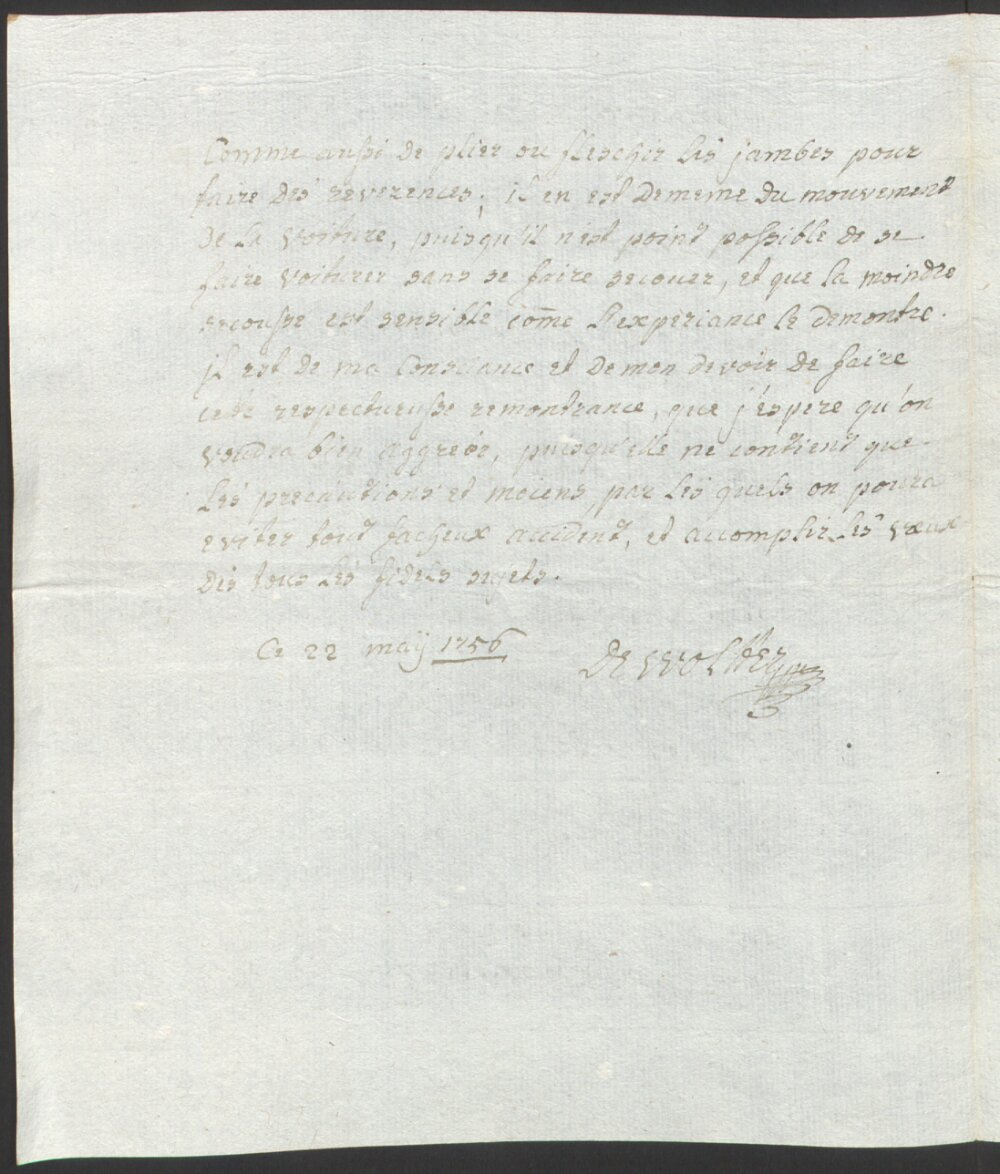 Comme aussi de plier ou fleschir les jambes pour
faire des reverences; il en est dememe du mouvement
de la voiture, puisqu'il n'est point possible de se
faire voiturer sans se faire secouer, et que la moindre
secousse est sensible com̃e l'experiance le demontre.
il est de ma Consciance et demon devoir de faire
cete respectueusse remontrance, que j'espere qu'on
voudra bien aggreér, puisqu'elle ne contient que
les precautions et moiens, par les quels on poura
eviter tout facheux accident, et accomplir les vœux
des tous les fidels sujets.
Ce 22 maÿ 1756
De Wolter